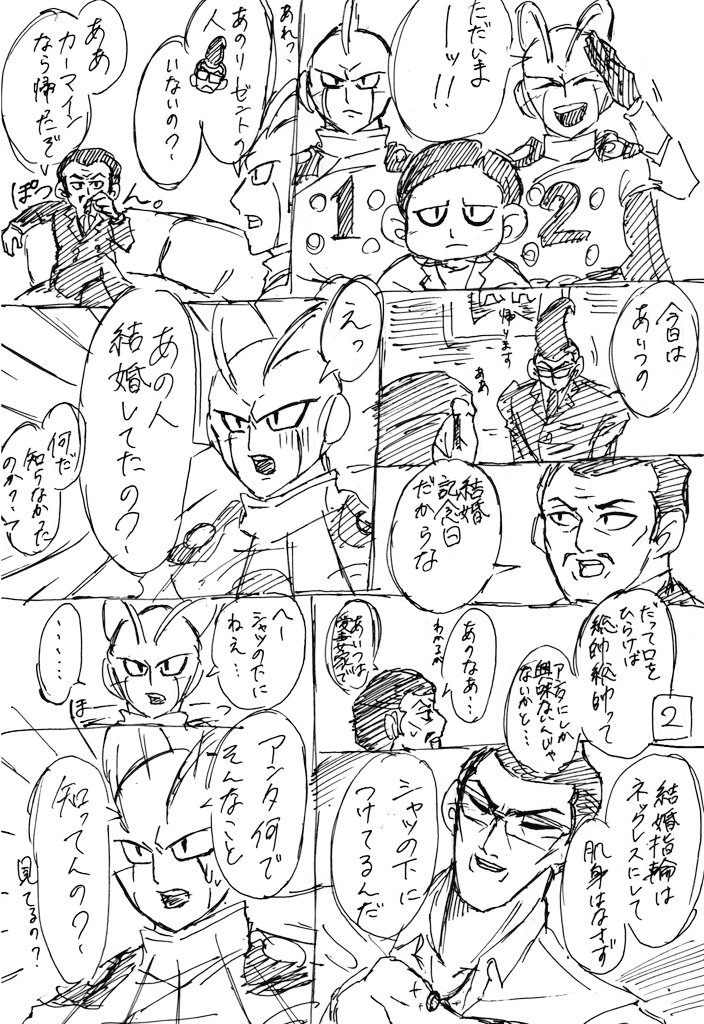 ただいま
ーッ!!
1
2
あれっ、
あのリーゼントの
人
いないの?
ああ
カーマイン
なら帰ったぞ
ぽつーん。
今日は
あいつの
帰ります
ああ
結婚
記念日
だからな
えっ
あの人
結婚してたの?
何だ
知らなかった
のか?
だって口を
ひらけば
総帥総帥って
アンタにしか
興味ないんじゃ
ないかと…
2
あのなあ…
わかるが
あいつは
愛妻家で
結婚指輪は
ネックレスにして
肌身はなさず
シャツの下に
つけてるんだ
へー
シャツの下に
ねえ…
……
アンタ何で
そんなこと
知ってんの?
見てるの?